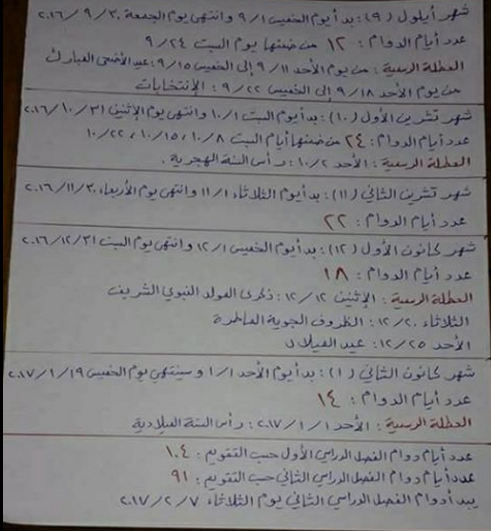 شهر أيلول (٩): بدأ يوم الخميس ٩/١ وانتهى يوم الجمعة ٢٠١٦/٩/٣٠
عدد أيام الدوام: ١٢ من ضمنها يوم السبت ٩/٢٤
العطلة الرسمية: من يوم الأحد ٩/١١ إلى الخميس ٩/١٥: عيد الأضحى المبارك
من يوم الأحد ٩/١٨ إلى الخميس ٩/٢٢: الإنتخابات
شهر تشرين الأول (١٠): بدأ يوم السبت ١٠/١ وانتهى يوم الإثنين ٢٠١٦/١٠/٣١
عدد أيام الدوام: ٢٤ من ضمنها أيام السبت ١٠/٨، ١٠/١٥، ١٠/٢٢
العطلة الرسمية: الأحد ١٠/٢: رأس السنة الهجرية.
شهر تشرين الثاني (١١): بدأ يوم الثلاثاء ١١/١ وانتهى يوم الأربعاء ٢٠١٦/١١/٣٠
عدد أيام الدوام: ٢٢
شهر كانون الأول (١٢): بدأ يوم الخميس ١٢/١ وانتهى يوم السبت ٢٠١٦/١٢/٣١
عدد أيام الدوام: ١٨
العطلة الرسمية: الإثنين ١٢/١٢: ذكرى المولد النبوي الشريف
الثلاثاء ١٢/٢٠: الظروف الجوية الماطرة
الأحد ١٢/٢٥: عيد الميلاد
شهر كانون الثاني (١): بدأ يوم الأحد ١/١ وسينتهي يوم الخميس ٢٠١٧/١/١٩
عدد أيام الدوام: ١٤
العطلة الرسمية: الأحد ٢٠١٧/١/١: رأس السنة الميلادية
عدد أيام دوام الفصل الدراسي الأول حسب التقويم: ١٠٤
عدد أيام دوام الفصل الدراسي الثاني حسب التقويم: ٩١
يبدأ دوام الفصل الدراسي الثاني يوم الثلاثاء ٢٠١٧/٢/٧